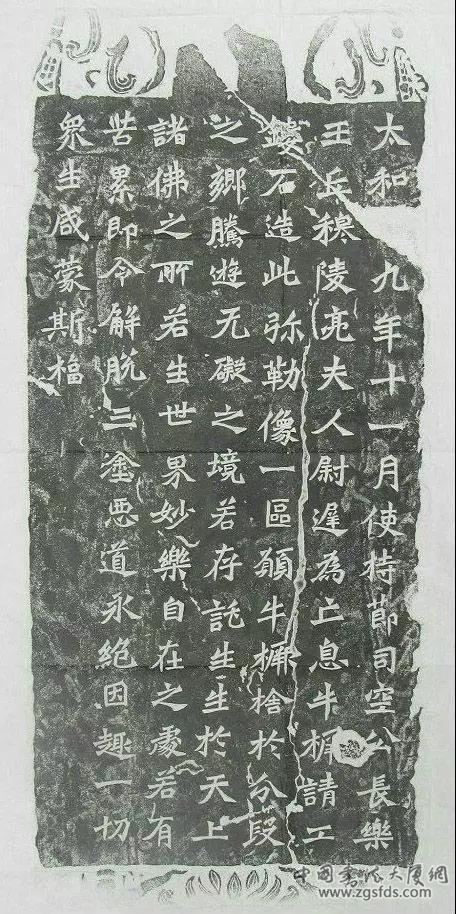 太和九年十一月使持節司空公長樂
王丘穆陵亮夫人尉遲為亡息牛橛請工
鏤石造此弥勒像一區願牛橛捨於分段
之鄉騰遊无礙之境若存託生生於天上
諸佛之所若生世界妙樂自在之處若有
苦累即令解脱三塗惡道永絕因趣一切
衆生咸蒙斯福
中國書法大廈網
www.zgsfds.com